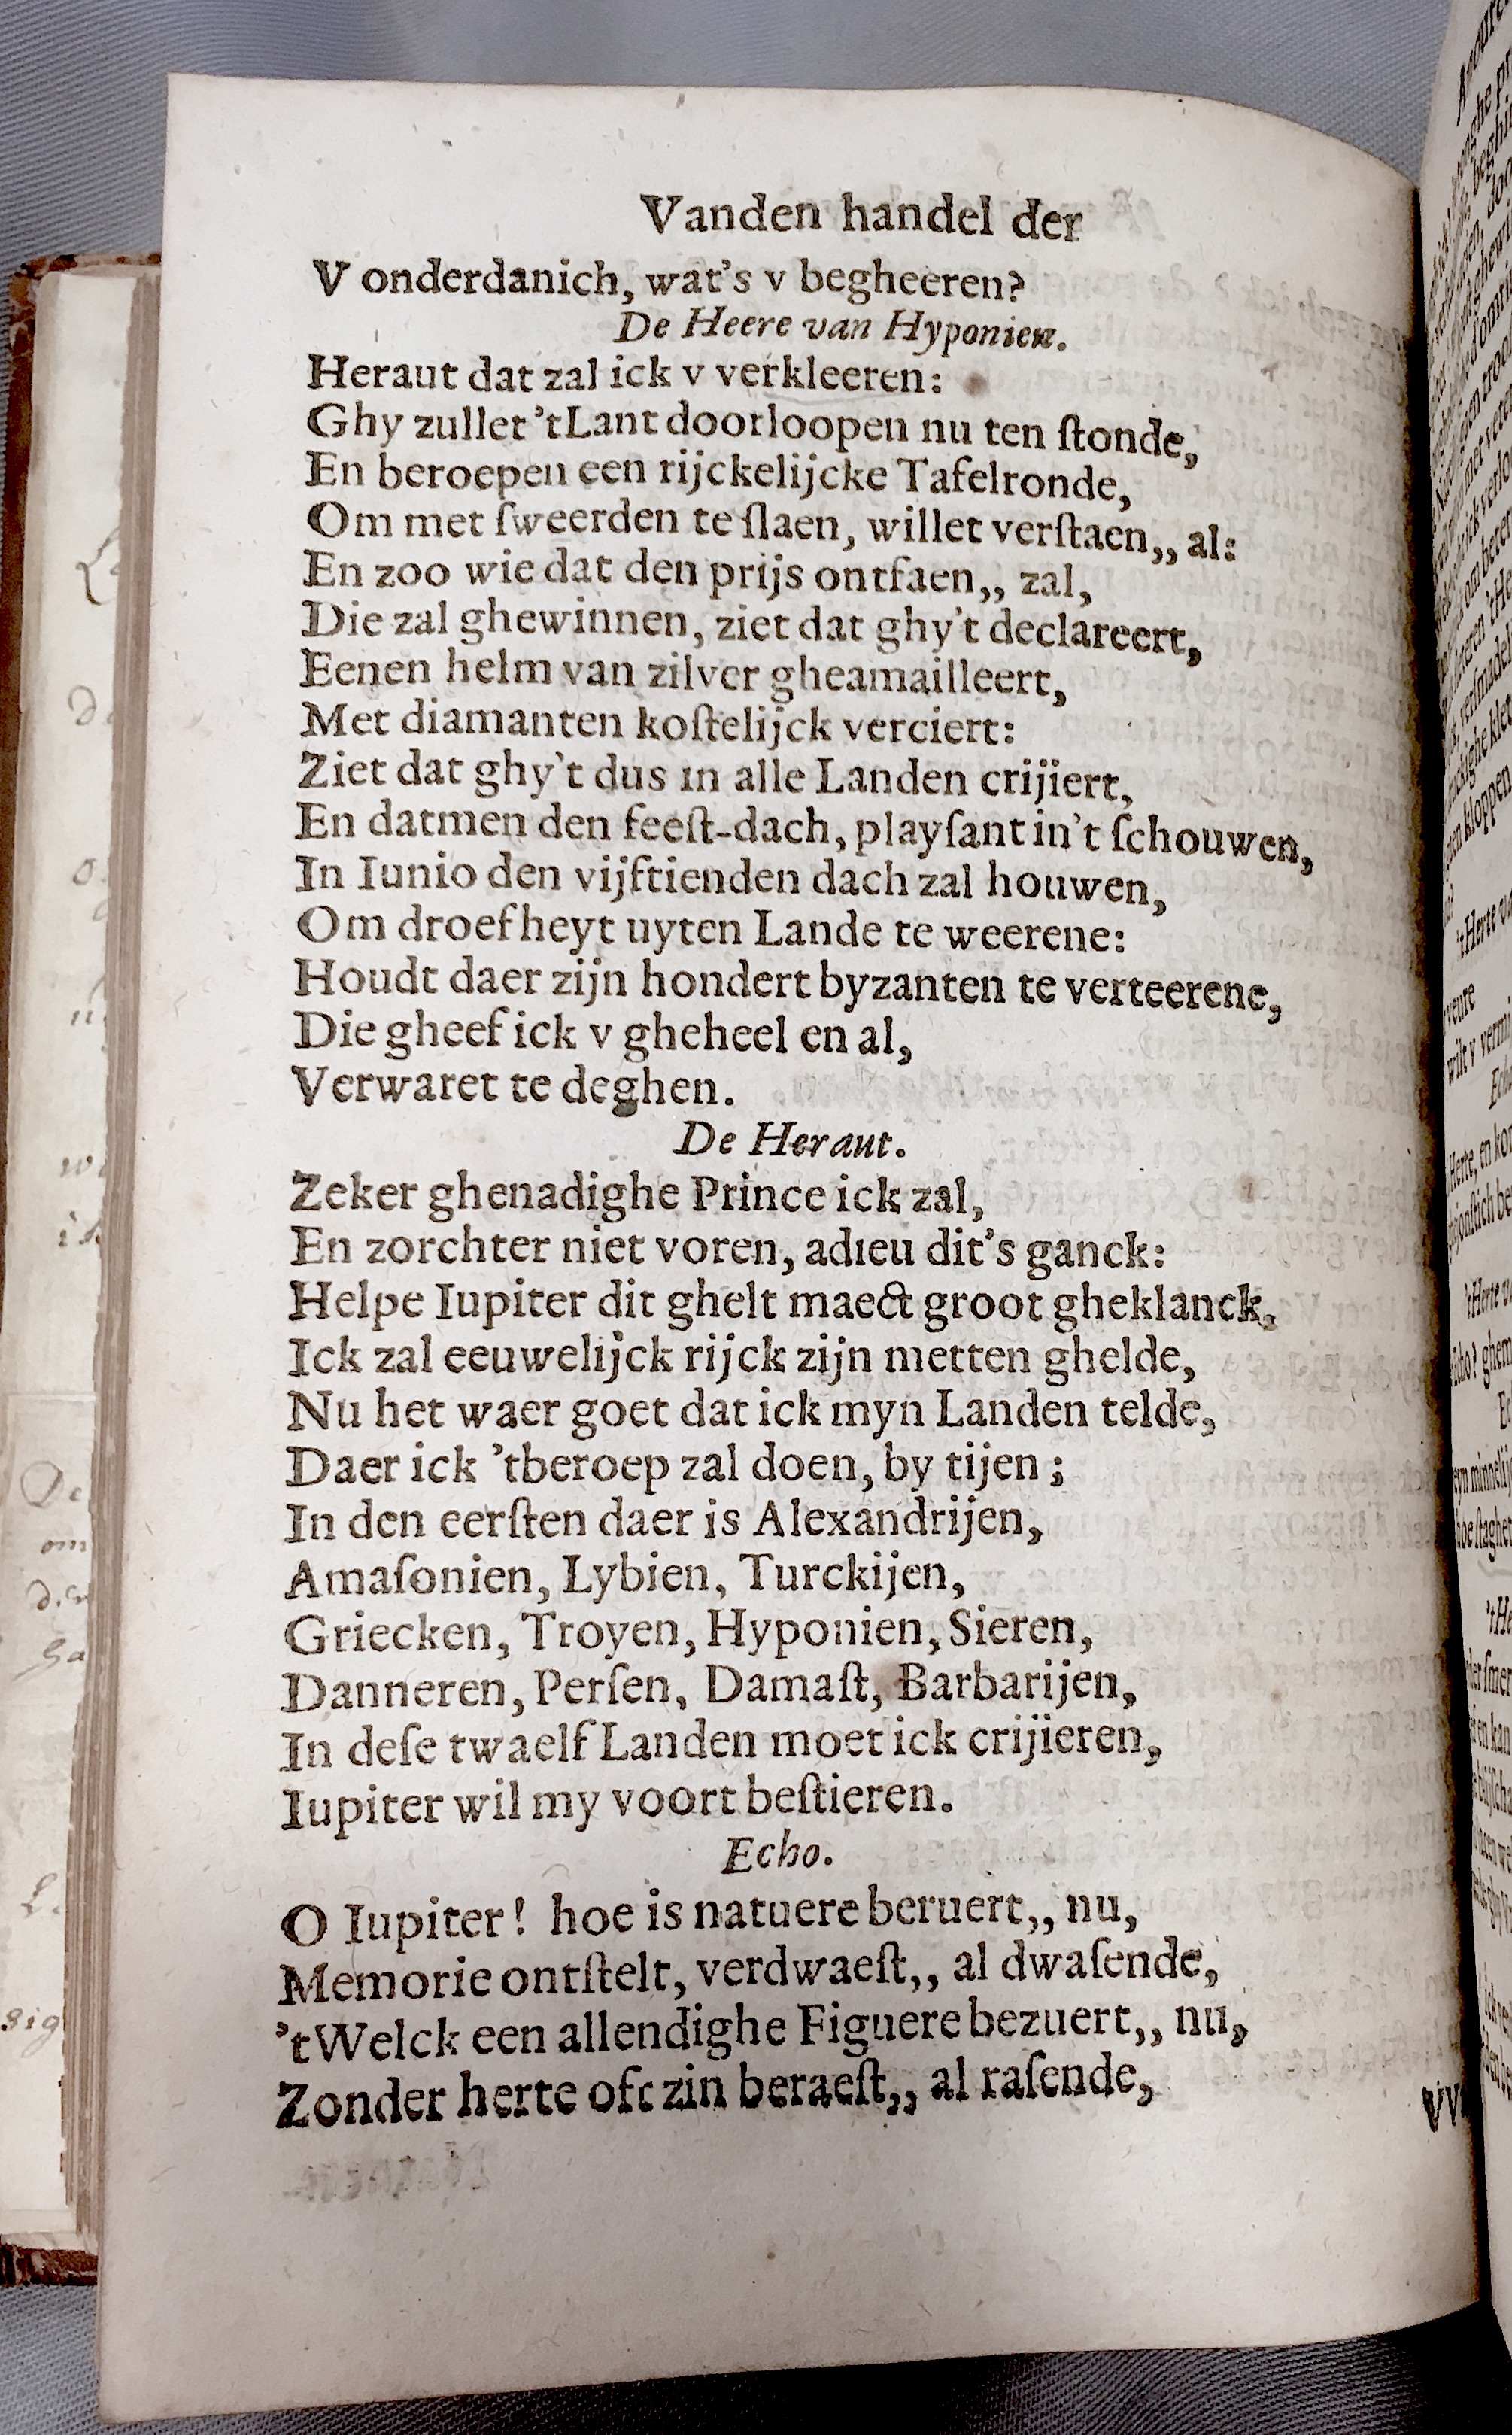 Vanden handel der
V onderdanich, wat's v begheeren?
De Heere van Hyponien.
Heraut dat zal ick v verkleeren:
Ghy zullet 'tLant doorloopen nu ten ſtonde,
En beroepen een rijckelijcke Tafelronde,
Om met ſweerden te ſlaen, willet verſtaen,, al:
En zoo wie dat den prijs ontfaen,, zal,
Die zal ghewinnen, ziet dat ghy't declareert,
Eenen helm van zilver gheamailleert,
Met diamanten koſtelijck verciert:
Ziet dat ghy't dus in alle Landen crijiert,
En datmen den feeſt-dach, playſant in't ſchouwen,
In Iunio den vijftienden dach zal houwen,
Om droefheyt uyten Lande te weerene:
Houdt daer zijn hondert byzanten te verteerene,
Die gheef ick v gheheel en al,
Verwaret te deghen.
De Heraut.
Zeker ghenadighe Prince ick zal,
En zorchter niet voren, adieu dit's ganck:
Helpe Iupiter dit ghelt maect groot gheklanck,
Ick zal eeuwelijck rijck zijn metten ghelde,
Nu het waer goet dat ick myn Landen telde,
Daer ick 'tberoep zal doen, by tijen;
In den eerſten daer is Alexandrijen,
Amaſonien, Lybien, Turckijen,
Griecken, Troyen, Hyponien, Sieren,
Danneren, Perſen, Damaſt, Barbarijen,
In deſe twaelf Landen moet ick crijieren,
Iupiter wil my voort beſtieren.
Echo.
O Iupiter! hoe is natuere beruert,, nu,
Memorie ontſtelt, verdwaeſt,, al dwaſende,
'tWelck een allendighe Figuere bezuert,, nu,
Zonder herte oft zin beraeſt,, al raſende,